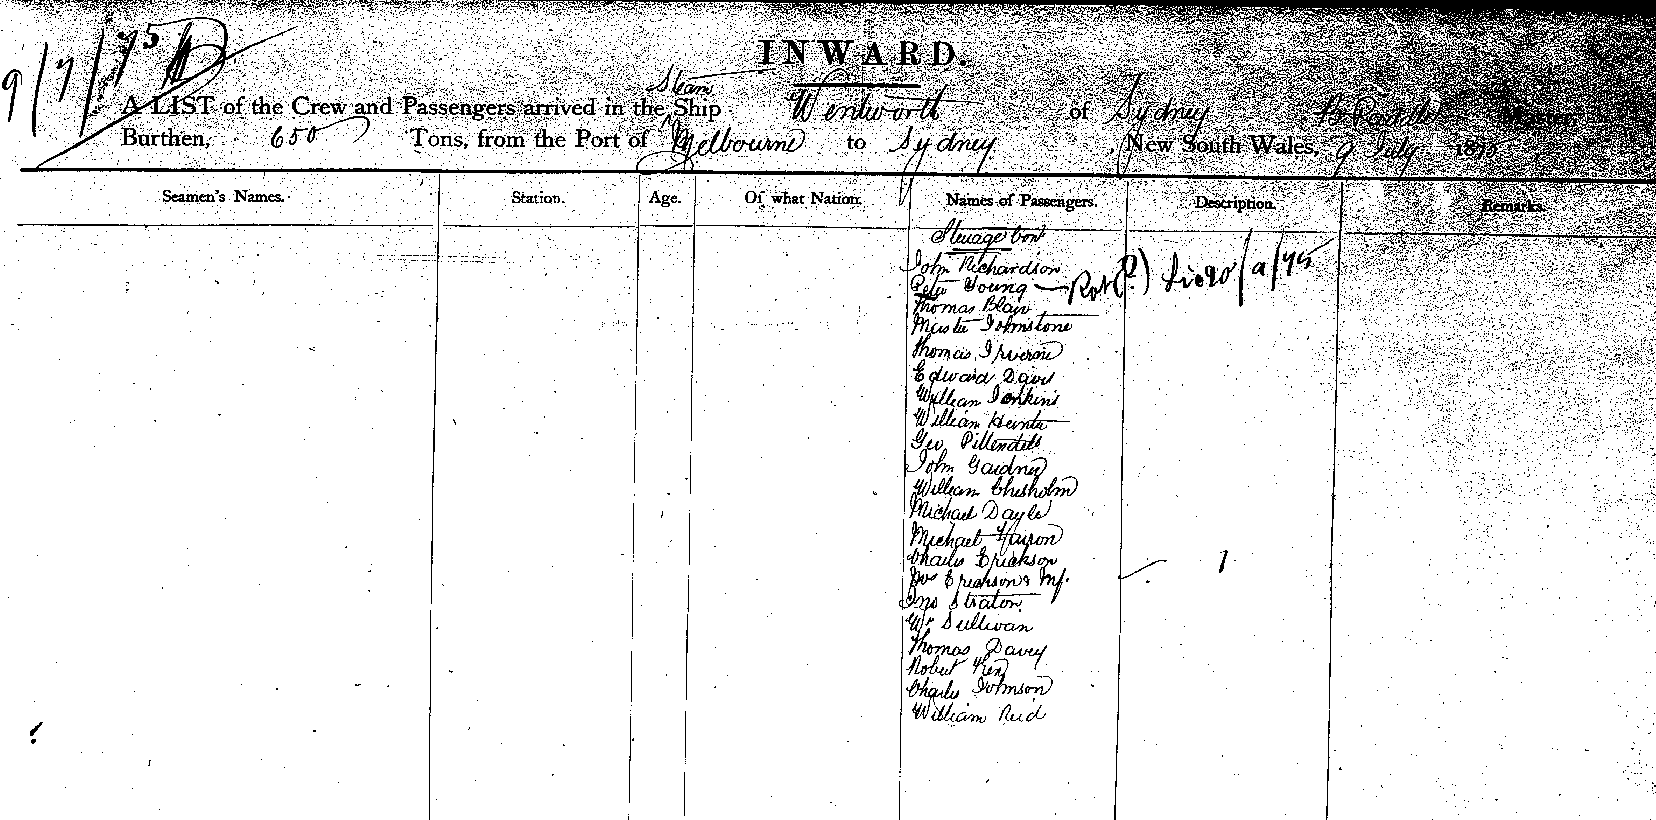 9/7/75
INWARD.
Steam
A LIST of the Crew and Passengers arrived in the Ship Wentworth of Sydney Master
Burthen, 650 Tons, from the Port of Melbourne to Sydney, New South Wales, 9 July 1875
Seamen's Names. Station. Age. Of what Nation. Names of Passengers. Description. Remarks.
Steerage Con
John Richardson
Peter Young
Thomas Blair
Master Johnstone
Thomas Irverne
Edward Davis
William Jenkins
William Hunter
Geo
John Gardner
William Chisholm
Michael Dayle
Michael
Charles Erickson
Mrs Erickson & Inf. 1
Jno Straton
Wm Sullivan
Thomas Davey
Robert Ken
Charles Johnson
William Reid